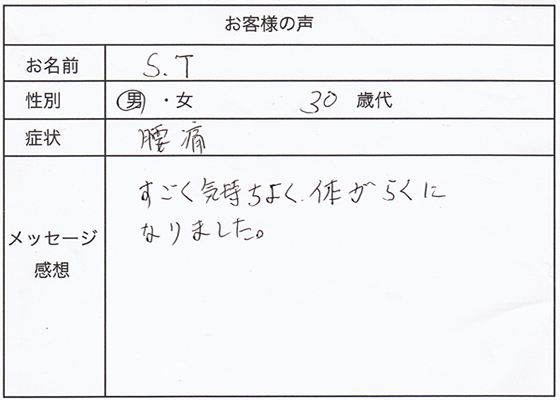 お客様の声
お名前 S.T
性別 男・女 30 歳代
症状 腰痛
すごく気持ちよく、体がらくに
メッセージ
なりました。
感想